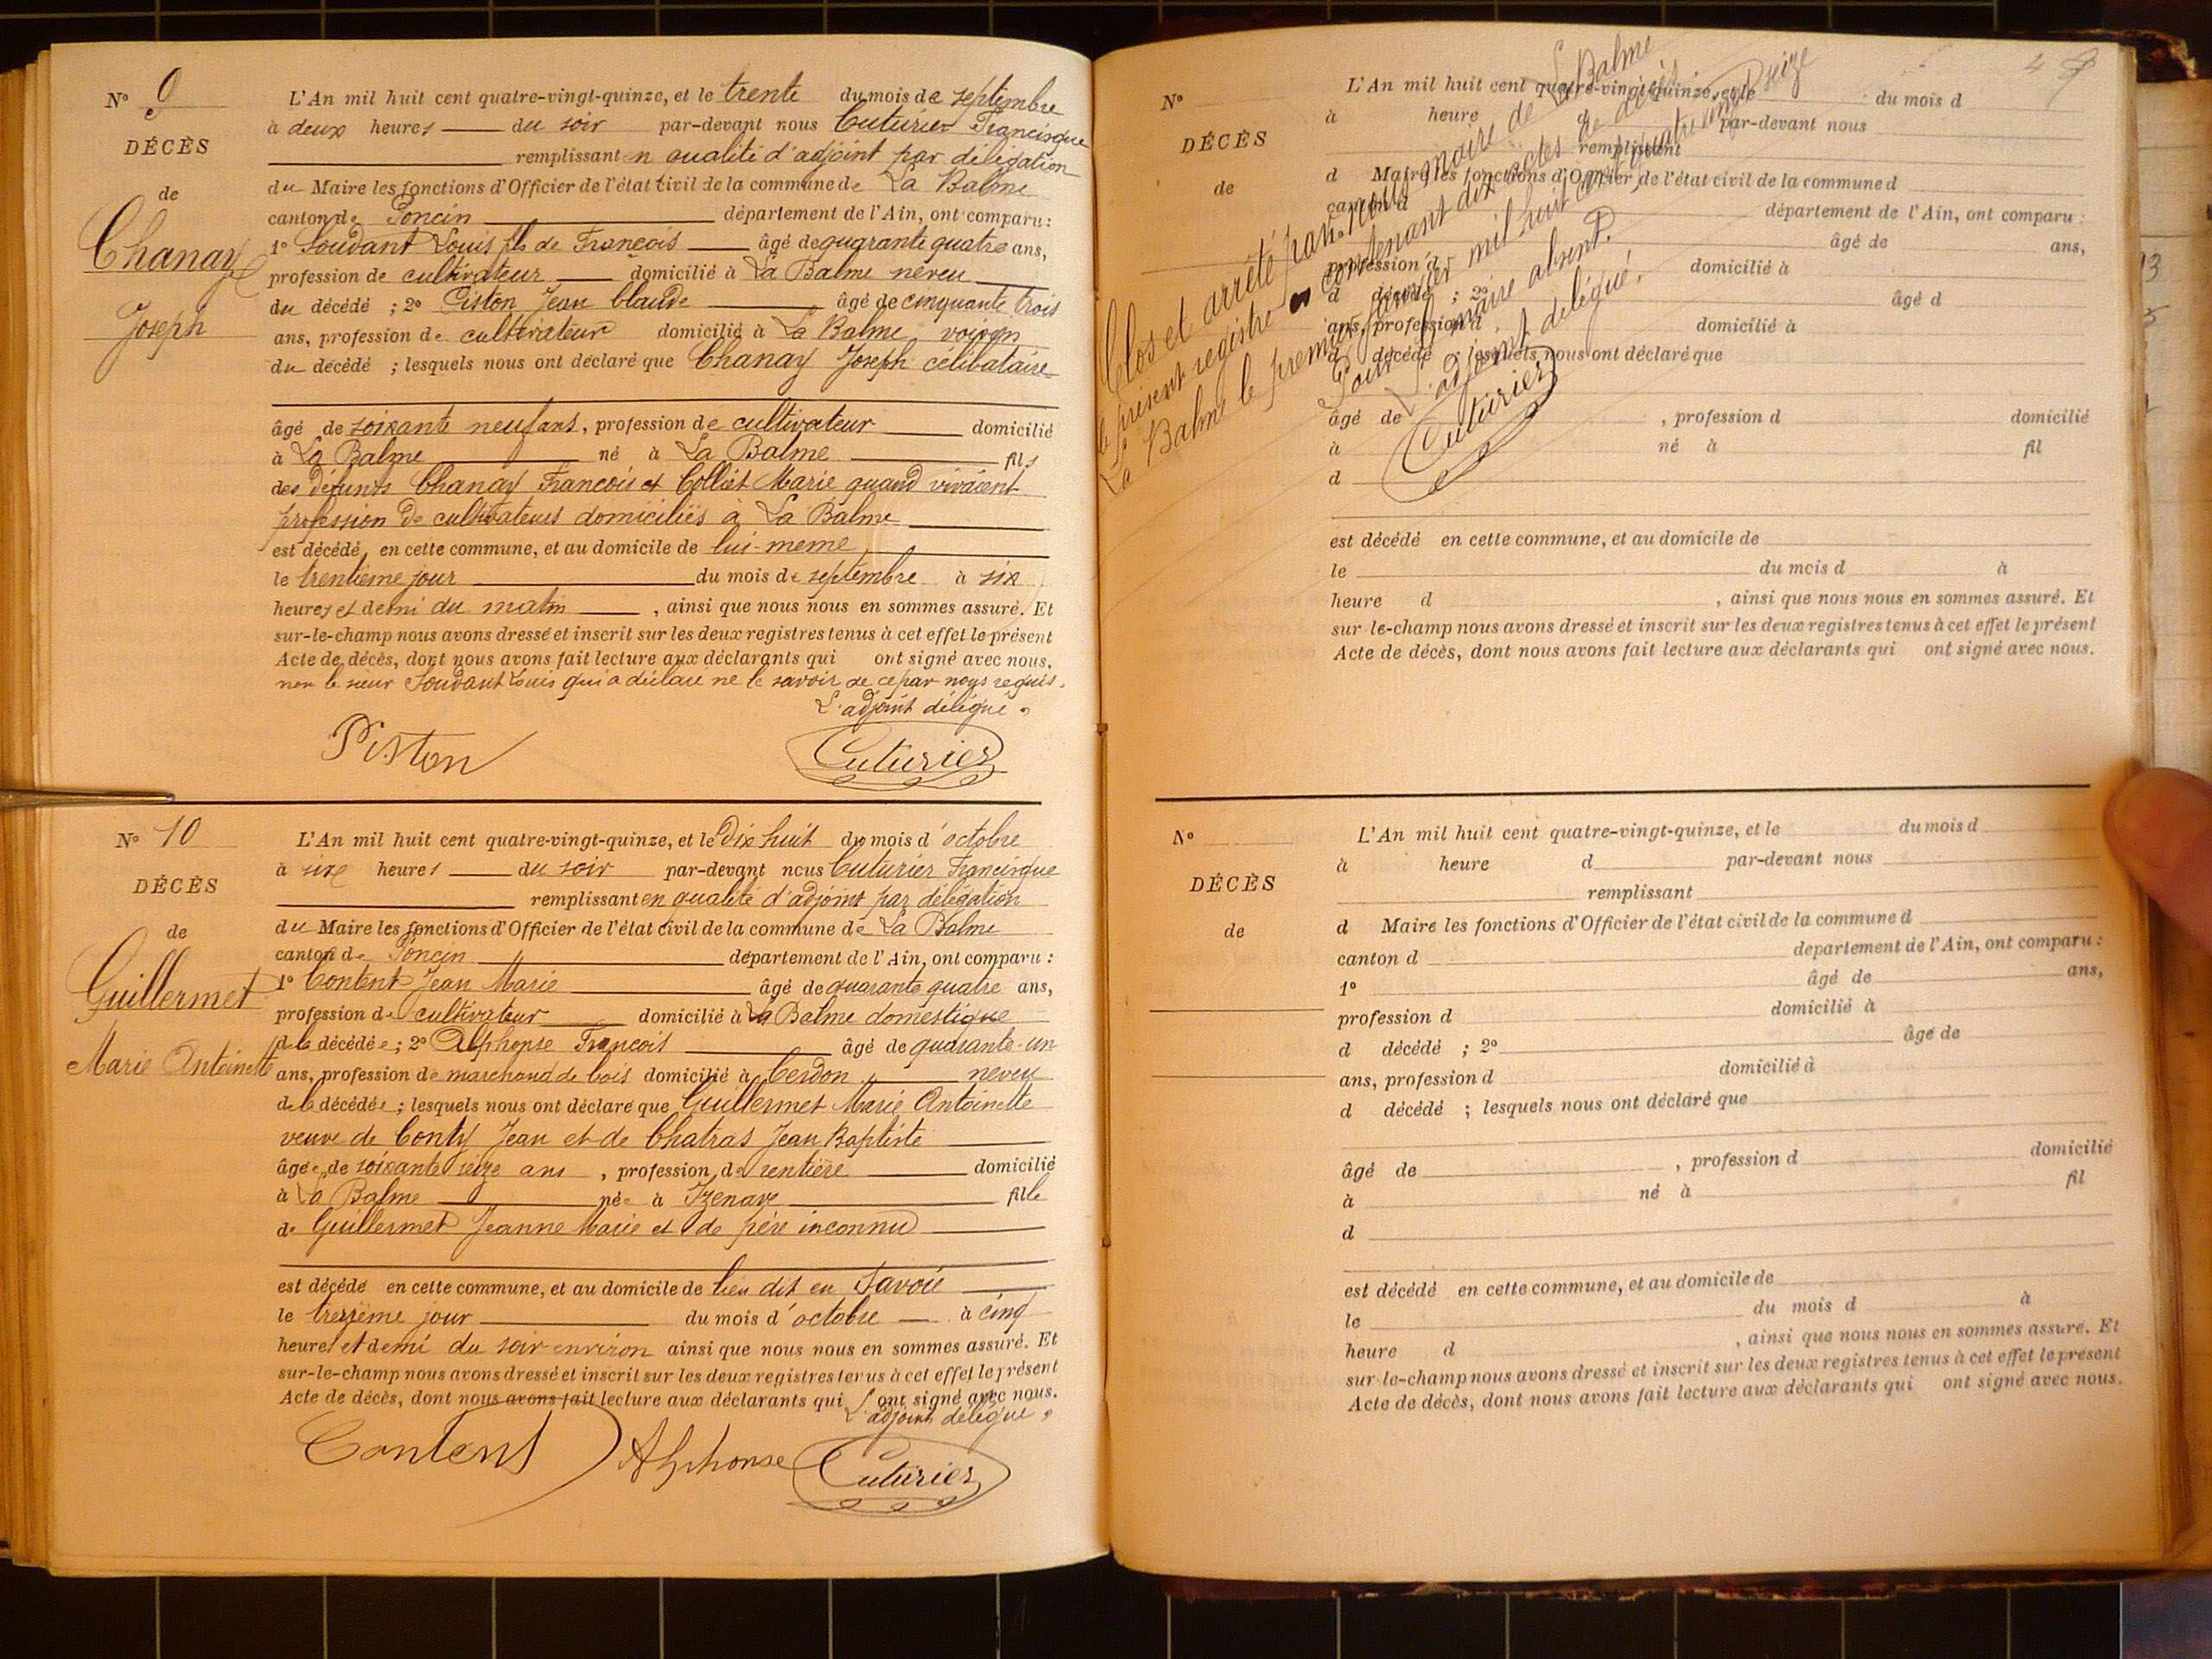 N° 9
DÉCÈS
de
Chanay
Joseph
L'An mil huit cent quatre-vingt-quinze, et le trente du mois de septembre
à deux heures du soir par-devant nous Cuturier Francisque
remplissant en qualité d'adjoint par délégation
du Maire les fonctions d'Officier de l'état civil de la commune de La Balme
canton de Poncin département de l'Ain, ont comparu :
1° Soudant Louis fils de François âgé de quarante quatre ans,
profession de cultivateur domicilié à La Balme neveu
du décédé ; 2° Piston Jean Claude âgé de cinquante trois
ans, profession de cultivateur domicilié à La Balme voisin
du décédé ; lesquels nous ont déclaré que Chanay Joseph célibataire
âgé de soixante neuf ans, profession de cultivateur domicilié
à La Balme né à La Balme fils
des défunts Chanay François et Colliet Marie quand vivaient
profession de cultivateurs domiciliés à La Balme
est décédé en cette commune, et au domicile de lui-meme
le trentieme jour du mois de septembre à six
heures et demi du matin , ainsi que nous nous en sommes assuré. Et
sur-le-champ nous avons dressé et inscrit sur les deux registres tenus à cet effet le présent
Acte de décès, dont nous avons fait lecture aux déclarants qui ont signé avec nous.
non le sieur Soudant Louis qui a déclaré ne le savoir de ce par nous requis.
L'adjoint délégué
Piston Cuturier
N° 10
DÉCÈS
de
Guillermet
Marie Antoinette
L'An mil huit cent quatre-vingt-quinze, et le Dix huit du mois d'octobre
à six heures du soir par-devant nous Cuturier Francisque
remplissant en qualité d'adjoint par délégation
du Maire les fonctions d'Officier de l'état civil de la commune de La Balme
canton de Poncin département de l'Ain, ont comparu :
1° Content Jean Marie âgé de quarante quatre ans,
profession de cultivateur domicilié à La Balme domestique
de la décédée ; 2° Alphonse François âgé de quarante-un
ans, profession de marchand de bois domicilié à Cerdon neveu
de la décédée ; lesquels nous ont déclaré que Guillermet Marie Antoinette
veuve de Conty Jean et de Chatras Jean Baptiste
âgée de soixante seize ans , profession de rentière domicilié
à La Balme née à Izenave fille
de Guillermet Jeanne Marie et de père inconnu
est décédé en cette commune, et au domicile de lieu dit en Savoie
le treizième jour du mois d'octobre à cinq
heures et demi du soir environ ainsi que nous nous en sommes assuré. Et
sur-le-champ nous avons dressé et inscrit sur les deux registres tenus à cet effet le présent
Acte de décès, dont nous avons fait lecture aux déclarants qui ont signé avec nous.
L'adjoint délégué
Content Alphonse Cuturier
4
N°
DÉCÈS
de
L'An mil huit cent quatre-vingt-quinze, et le du mois d
à heure d par-devant nous
remplissant
d Maire les fonctions d'Officier de l'état civil de la commune d
canton d département de l'Ain, ont comparu :
âgé de ans,
profession d domicilié à
d décédé ; 2° âgé d
ans, profession d domicilié à
d décédé ; lesquels nous ont déclaré que
âgé de , profession d domicilié
à né à fil
d
est décédé en cette commune, et au domicile de
le du mois d à
heure d , ainsi que nous nous en sommes assuré. Et
sur-le-champ nous avons dressé et inscrit sur les deux registres tenus à cet effet le présent
Acte de décès, dont nous avons fait lecture aux déclarants qui ont signé avec nous.
Clos et arrêté par nous maire de La Balme
le présent registre contenant dix actes de décès
La Balme le premier janvier mil huit cent quatre vingt seize
Pour le maire absent.
L'adjoint délégué.
Cuturier
N°
DÉCÈS
de
L'An mil huit cent quatre-vingt-quinze, et le du mois d
à heure d par-devant nous
remplissant
d Maire les fonctions d'Officier de l'état civil de la commune d
canton d département de l'Ain, ont comparu :
1° âgé de ans,
profession d domicilié à
d décédé ; 2° âgé de
ans, profession d domicilié à
d décédé ; lesquels nous ont déclaré que
âgé de , profession d domicilié
à né à fil
d
est décédé en cette commune, et au domicile de
le du mois d à
heure d , ainsi que nous nous en sommes assuré. Et
sur-le-champ nous avons dressé et inscrit sur les deux registres tenus à cet effet le présent
Acte de décès, dont nous avons fait lecture aux déclarants qui ont signé avec nous.